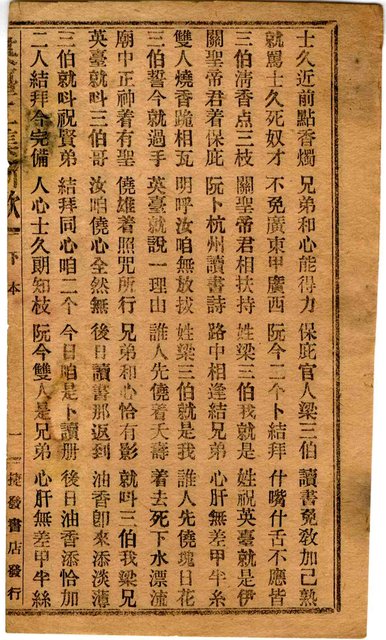 士久近前點香燭 兄弟和心能得力 保庇官人梁三伯 讀書免敎加己熟
就罵士久死奴才 不免廣東甲廣西 阮今二个卜結拜 什嘴什舌不應皆
三伯淸香点三枝 關聖帝君相扶持 姓梁三伯我就是 姓祝英臺就是伊
關聖帝君着保庇 阮卜杭州讀書詩 路中相逢結兄弟 心肝無差甲半糸
雙人燒香跪相瓦 明呼汝咱無放拔 姓梁三伯就是我 誰人先僥塊日花
三伯誓今就過手 英臺就說一理由 誰人先僥着夭壽 着去死下水漂流
廟中正神着有聖 僥雄着照咒所行 兄弟和心恰有影 就呌三伯我梁兄
英臺就呌三伯哥 汝咱僥心全然無 後日讀書那返到 油香卽來添淡薄
三伯就呌祝賢弟 結拜同心咱二个 今日咱是卜讀册 後日油香添恰加
二人結拜今完備 人心士久朗知枝 阮今雙人是兄弟 心肝無差甲半絲
新歌 下本 一 捷發書店發行